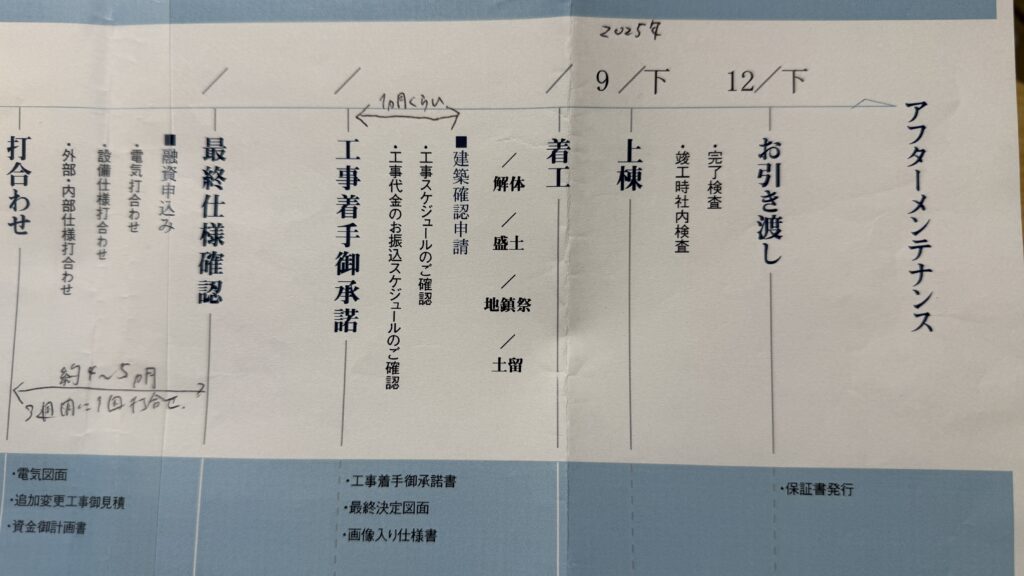 2025年
／
／
／
9／下
12／下
1ヵ月くらい
打合わせ
・外部・内部仕様打合わせ
・設備仕様打合わせ
・電気打合わせ
■融資申込み
最終仕様確認
工事着手御承諾
・工事代金のお振込スケジュールのご確認
・工事スケジュールのご確認
■建築確認申請
／
解体
／
盛土
／
地鎮祭
／
土留
着工
上棟
・竣工時社内検査
・完了検査
お引き渡し
アフターメンテナンス
約4〜5ヵ月
3週間に1回打合せ.
・電気図面
・追加変更工事御見積
・資金御計画書
・工事着手御承諾書
・最終決定図面
・画像入り仕様書
・保証書発行